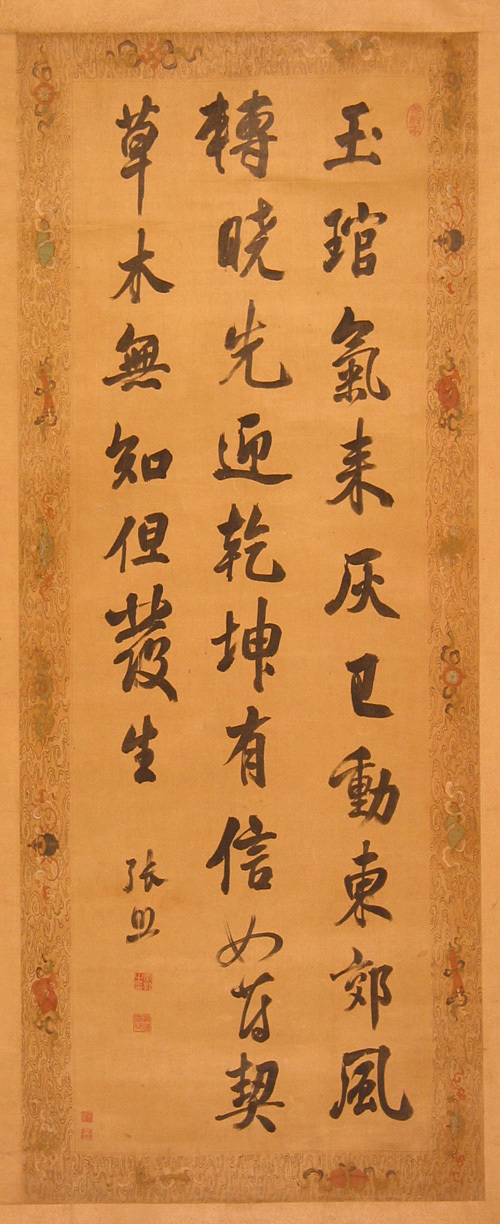 玉琯氣来灰已動東郊風
轉曉先迎乾坤有信如符契
草木無知但發生
張照